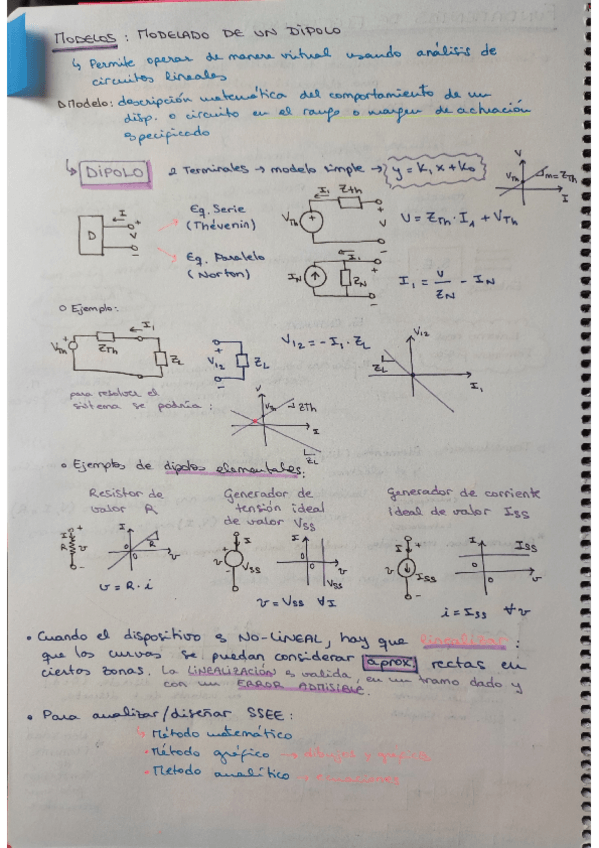 MODELOS: MODELADO DE UN DIPOLO
↳ Permite operar de manera virtual usando análisis de
circuitos lineales
Modelo: descripción matemática del comportamiento de un
disp. o circuito en el rango o margen de actuación
especificado
↳ DIPOLO 2 Terminales → modelo simple → y = K₁x + K₀
V
VTh
m = ZTh
I
D
I
+
V
-
Eq. Serie
(Thévenin)
VTh
I₁
ZTh
+
V
-
V = ZTh · I₁ + VTh
Eq. Paralelo
(Norton)
IN
I₁
ZN
+
-
I₁ = V/ZN - IN
Ejemplo:
VTh
ZTh
I₁
ZL
+
V₁₂
-
ZL
V₁₂ = -I₁ · ZL
V₁₂
ZL
I₁
para resolver el
sistema se podría:
V
VTh
ZTh
I
ZL
• Ejemplos de dipolos elementales:
Resistor de
valor R
Generador de
tensión ideal
de valor VSS
Generador de corriente
ideal de valor ISS
I
R
+
v
-
I
R
0
0
v
v = R · i
I
+
v
VSS
-
I
0
0
VSS
v
v = VSS ∀I
I
+
v
ISS
-
I
ISS
0
0
v
i = ISS ∀v
• Cuando el dispositivo es NO-LINEAL, hay que linealizar:
que las curvas se puedan considerar aprox. rectas en
ciertas zonas. La LINEALIZACIÓN es valida, en un tramo dado y
con un ERROR ADMISIBLE.
• Para analizar/diseñar SSEE:
↳ Método matemático
• Método gráfico → dibujos y gráficas
• Metodo analítico → ecuaciones